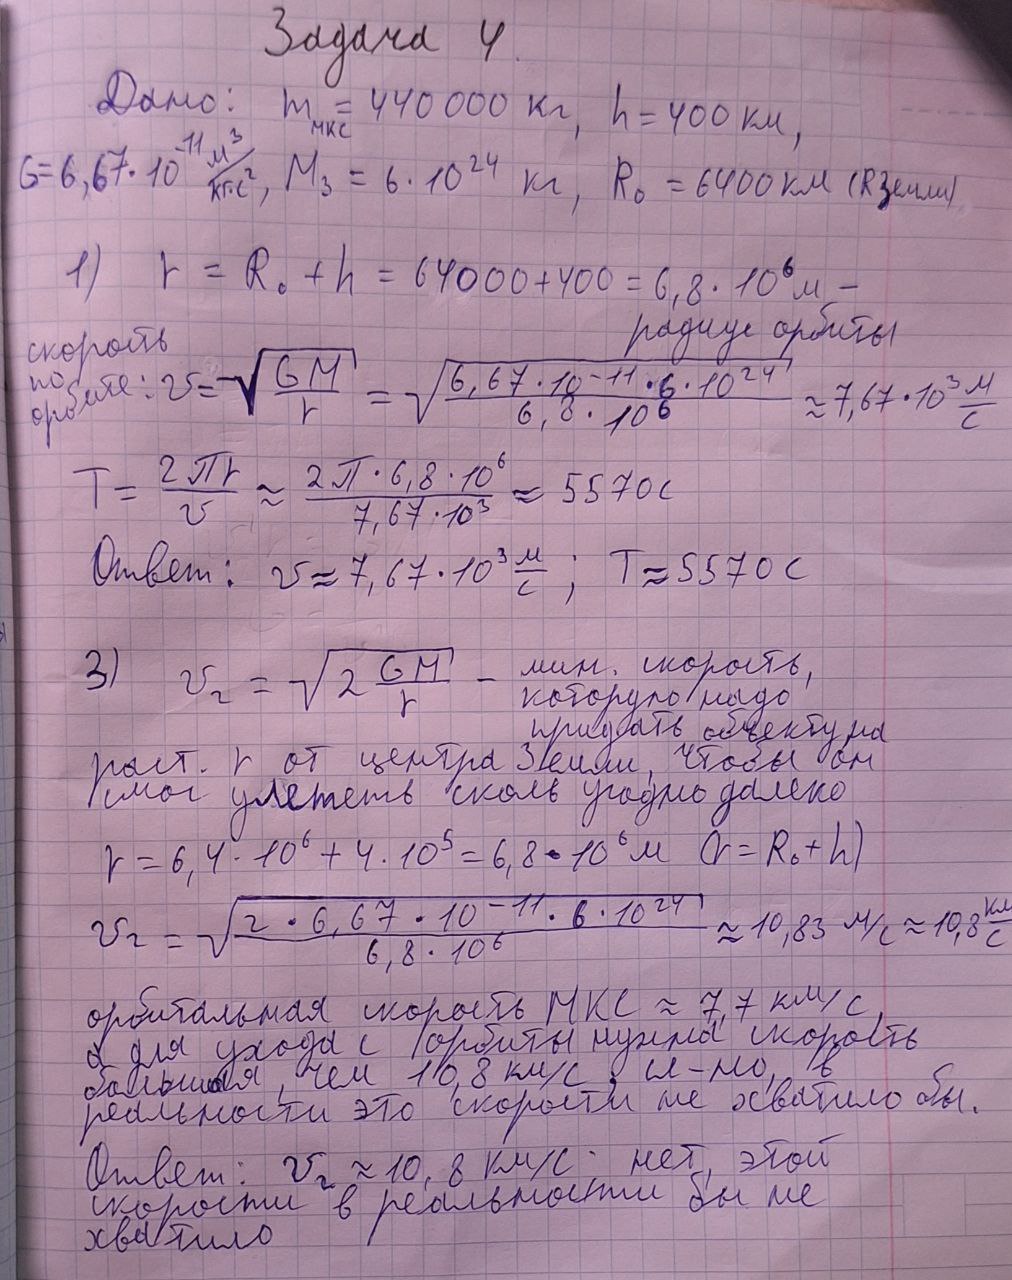 Задача 4.
Дано: m мкс = 440 000 кг, h = 400 км,
G = 6,67·10⁻¹¹ м³/кг·с², M₃ = 6·10²⁴ кг, R₀ = 6400 км (R Земли)
1) r = R₀ + h = 64000 + 400 = 6,8·10⁶ м –
радиус орбиты
скорость
по
орбите: v = √(GM/r) = √(6,67·10⁻¹¹·6·10²⁴/6,8·10⁶) ≈ 7,67·10³ м/с
T = 2πr/v ≈ 2π·6,8·10⁶/7,67·10³ ≈ 5570 с
Ответ: v ≈ 7,67·10³ м/с; T ≈ 5570 с
3) v₂ = √(2 GM/r) – мин. скорость,
которую надо
придать объекту на
раст. r от центра Земли, чтобы он
смог улететь сколь угодно далеко
r = 6,4·10⁶ + 4·10⁵ = 6,8·10⁶ м (r = R₀ + h)
v₂ = √(2·6,67·10⁻¹¹·6·10²⁴/6,8·10⁶) ≈ 10,83 м/с ≈ 10,8 км/с
орбитальная скорость МКС ≈ 7,7 км/с,
а для ухода с орбиты нужна скорость
большая, чем 10,8 км/с, сл-но, в
реальности это скорости не хватило бы.
Ответ: v₂ ≈ 10,8 км/с; нет, этой
скорости в реальности бы не
хватило